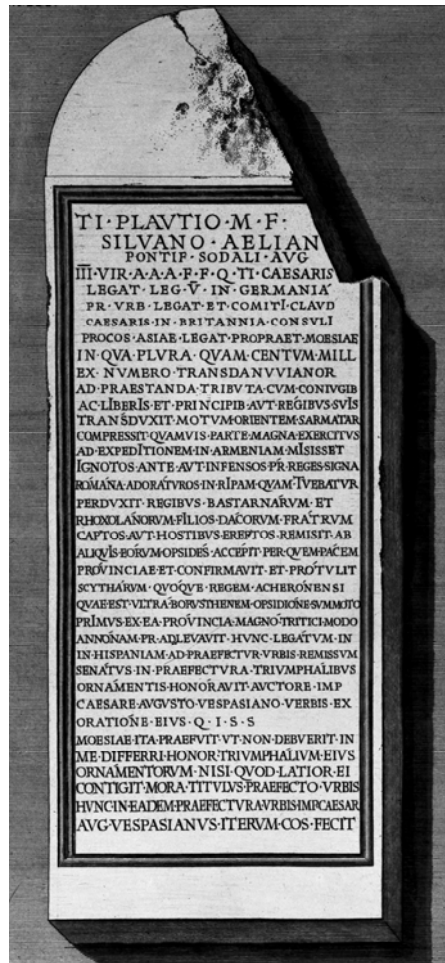 TI·PLAVTIO·M·F·
SILVANO·AELIAN
PONTIF·SODALI·AVG
III·VIR·A·A·A·F·F·Q·TI·CAESARIS
LEGAT·LEG·V̄·IN·GERMANIA
PR·VRB·LEGAT·ET·COMITI·CLAVD
CAESARIS·IN·BRITANNIA·CONSVLI
PROCOS·ASIAE·LEGAT·PROPRAET·MOESIAE
IN·QVA·PLVRA·QVAM·CENTVM·MILL
EX·NVMERO·TRANSDANVVIANOR
AD·PRAESTANDA·TRIBVTA·CVM·CONIVGIB
AC·LIBERIS·ET·PRINCIPIB·AVT·REGIBVS·SVIS
TRANSDVXIT·MOTVM·ORIENTEM·SARMATAR
COMPRESSIT·QVAMVIS·PARTE·MAGNA·EXERCITVS
AD·EXPEDITIONEM·IN·ARMENIAM·MISISSET
IGNOTOS·ANTE·AVT·INFENSOS·P·R·REGES·SIGNA
ROMANA·ADORATVROS·IN·RIPAM·QVAM·TVEBATVR
PERDVXIT·REGIBVS·BASTARNARVM·ET
RHOXOLANORVM·FILIOS·DACORVM·FRATRVM
CAPTOS·AVT·HOSTIBVS·EREPTOS·REMISIT·AB
ALIQVIS·EORVM·OPSIDES·ACCEPIT·PER·QVEM·PACEM
PROVINCIAE·ET·CONFIRMAVIT·ET·PROTVLIT
SCYTHARVM·QVOQVE·REGEM·A·CHERONENSI
QVAE·EST·VLTRA·BORVSTHENEM·OPSIDIONE·SVMMOTO
PRIMVS·EX·EA·PROVINCIA·MAGNO·TRITICI·MODO
ANNONAM·P·R·ADLEVAVIT·HVNC·LEGATVM·IN
IN·HISPANIAM·AD·PRAEFECTVR·VRBIS·REMISSVM
SENATVS·IN·PRAEFECTVRA·TRIVMPHALIBVS
ORNAMENTIS·HONORAVIT·AVCTORE·IMP
CAESARE·AVGVSTO·VESPASIANO·VERBIS·EX
ORATIONE·EIVS·Q·I·S·S
MOESIAE·ITA·PRAEFVIT·VT·NON·DEBVERIT·IN
ME·DIFFERRI·HONOR·TRIVMPHALIVM·EIVS
ORNAMENTORVM·NISI·QVOD·LATIOR·EI
CONTIGIT·MORA·TITVLVS·PRAEFECTO·VRBIS
HVNC·IN·EADEM·PRAEFECTVRA·VRBIS·IMP·CAESAR
AVG·VESPASIANVS·ITERVM·COS·FECIT